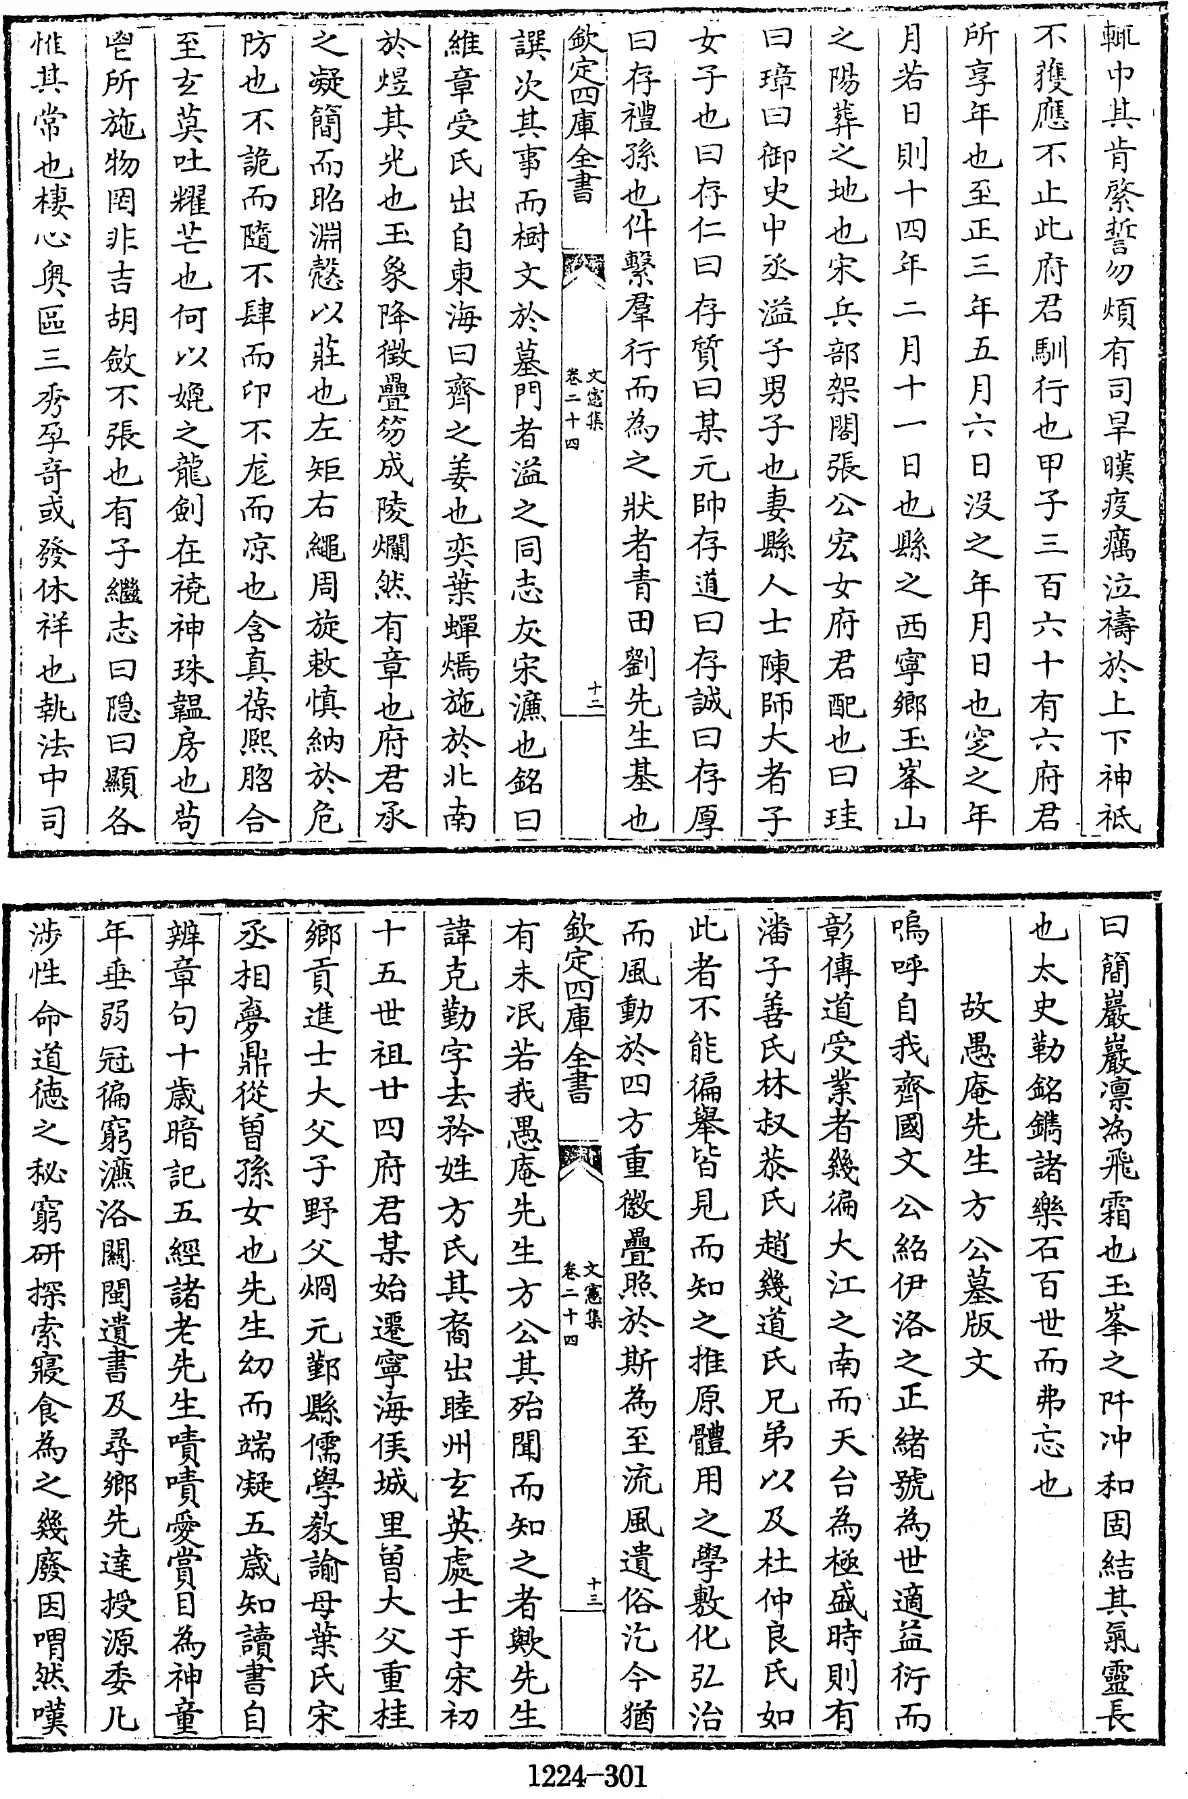 輒中其肯綮誓勿煩有司旱暵疫癘泣禱於上下神祗
不獲應不止此府君馴行也甲子三百六十有六府君
所享年也至正三年五月六日沒之年月日也窆之年
月若日則十四年二月十一日也縣之西寧鄉玉峯山
之陽葬之地也宋兵部架閣張公宏女府君配也曰珪
曰璋曰御史中丞溢子男子也妻縣人士陳師大者子
女子也曰存仁曰存質曰某元帥存道曰存誠曰存厚
曰存禮孫也件繫羣行而為之狀者青田劉先生基也
欽定四庫全書
文憲集
卷二十四
十二
譔次其事而樹文於墓門者溢之同志友宋濂也銘曰
維章受氏出自東海曰齊之姜也奕葉蟬嫣施於北南
於煜其光也玉象降徵疊笏成陵爛然有章也府君承
之凝簡而昭淵慤以莊也左矩右繩周旋敕慎納於危
防也不詭而隨不肆而卬不尨而涼也含真葆熙脗合
至玄莫吐耀芒也何以媲之龍劍在襓神珠韞房也茍
鬯所施物罔非吉胡斂不張也有子繼志曰隱曰顯各
惟其常也棲心奧區三秀孕奇或發休祥也執法中司
曰簡巖巖凛為飛霜也玉峯之阡冲和固結其氣靈長
也太史勒銘鐫諸樂石百世而弗忘也
故愚庵先生方公墓版文
嗚呼自我齊國文公紹伊洛之正緒號為世適益衍而
彰傳道受業者幾徧大江之南而天台為極盛時則有
潘子善氏林叔恭氏趙幾道氏兄弟以及杜仲良氏如
此者不能徧舉皆見而知之推原體用之學敷化弘治
而風動於四方重徽疊照於斯為至流風遺俗汔今猶
欽定四庫全書
文憲集
卷二十四
十三
有未泯若我愚庵先生方公其殆聞而知之者歟先生
諱克勤字去矜姓方氏其裔出睦州玄英處士于宋初
十五世祖廿四府君某始遷寧海侯城里曾大父重桂
鄉貢進士大父子野父烱元鄞縣儒學教諭母葉氏宋
丞相夢鼎從曾孫女也先生幼而端凝五歲知讀書自
辨章句十歲暗記五經諸老先生嘖嘖愛賞目為神童
年垂弱冠徧窮濂洛關閩遺書及尋鄉先達授源委凡
涉性命道德之秘窮研探索寢食為之幾廢因喟然嘆
1224-301